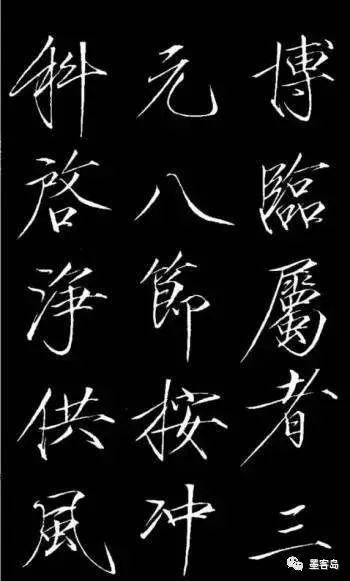 博臨屬者三
元八節按冲
科啓淨供風
墨客岛